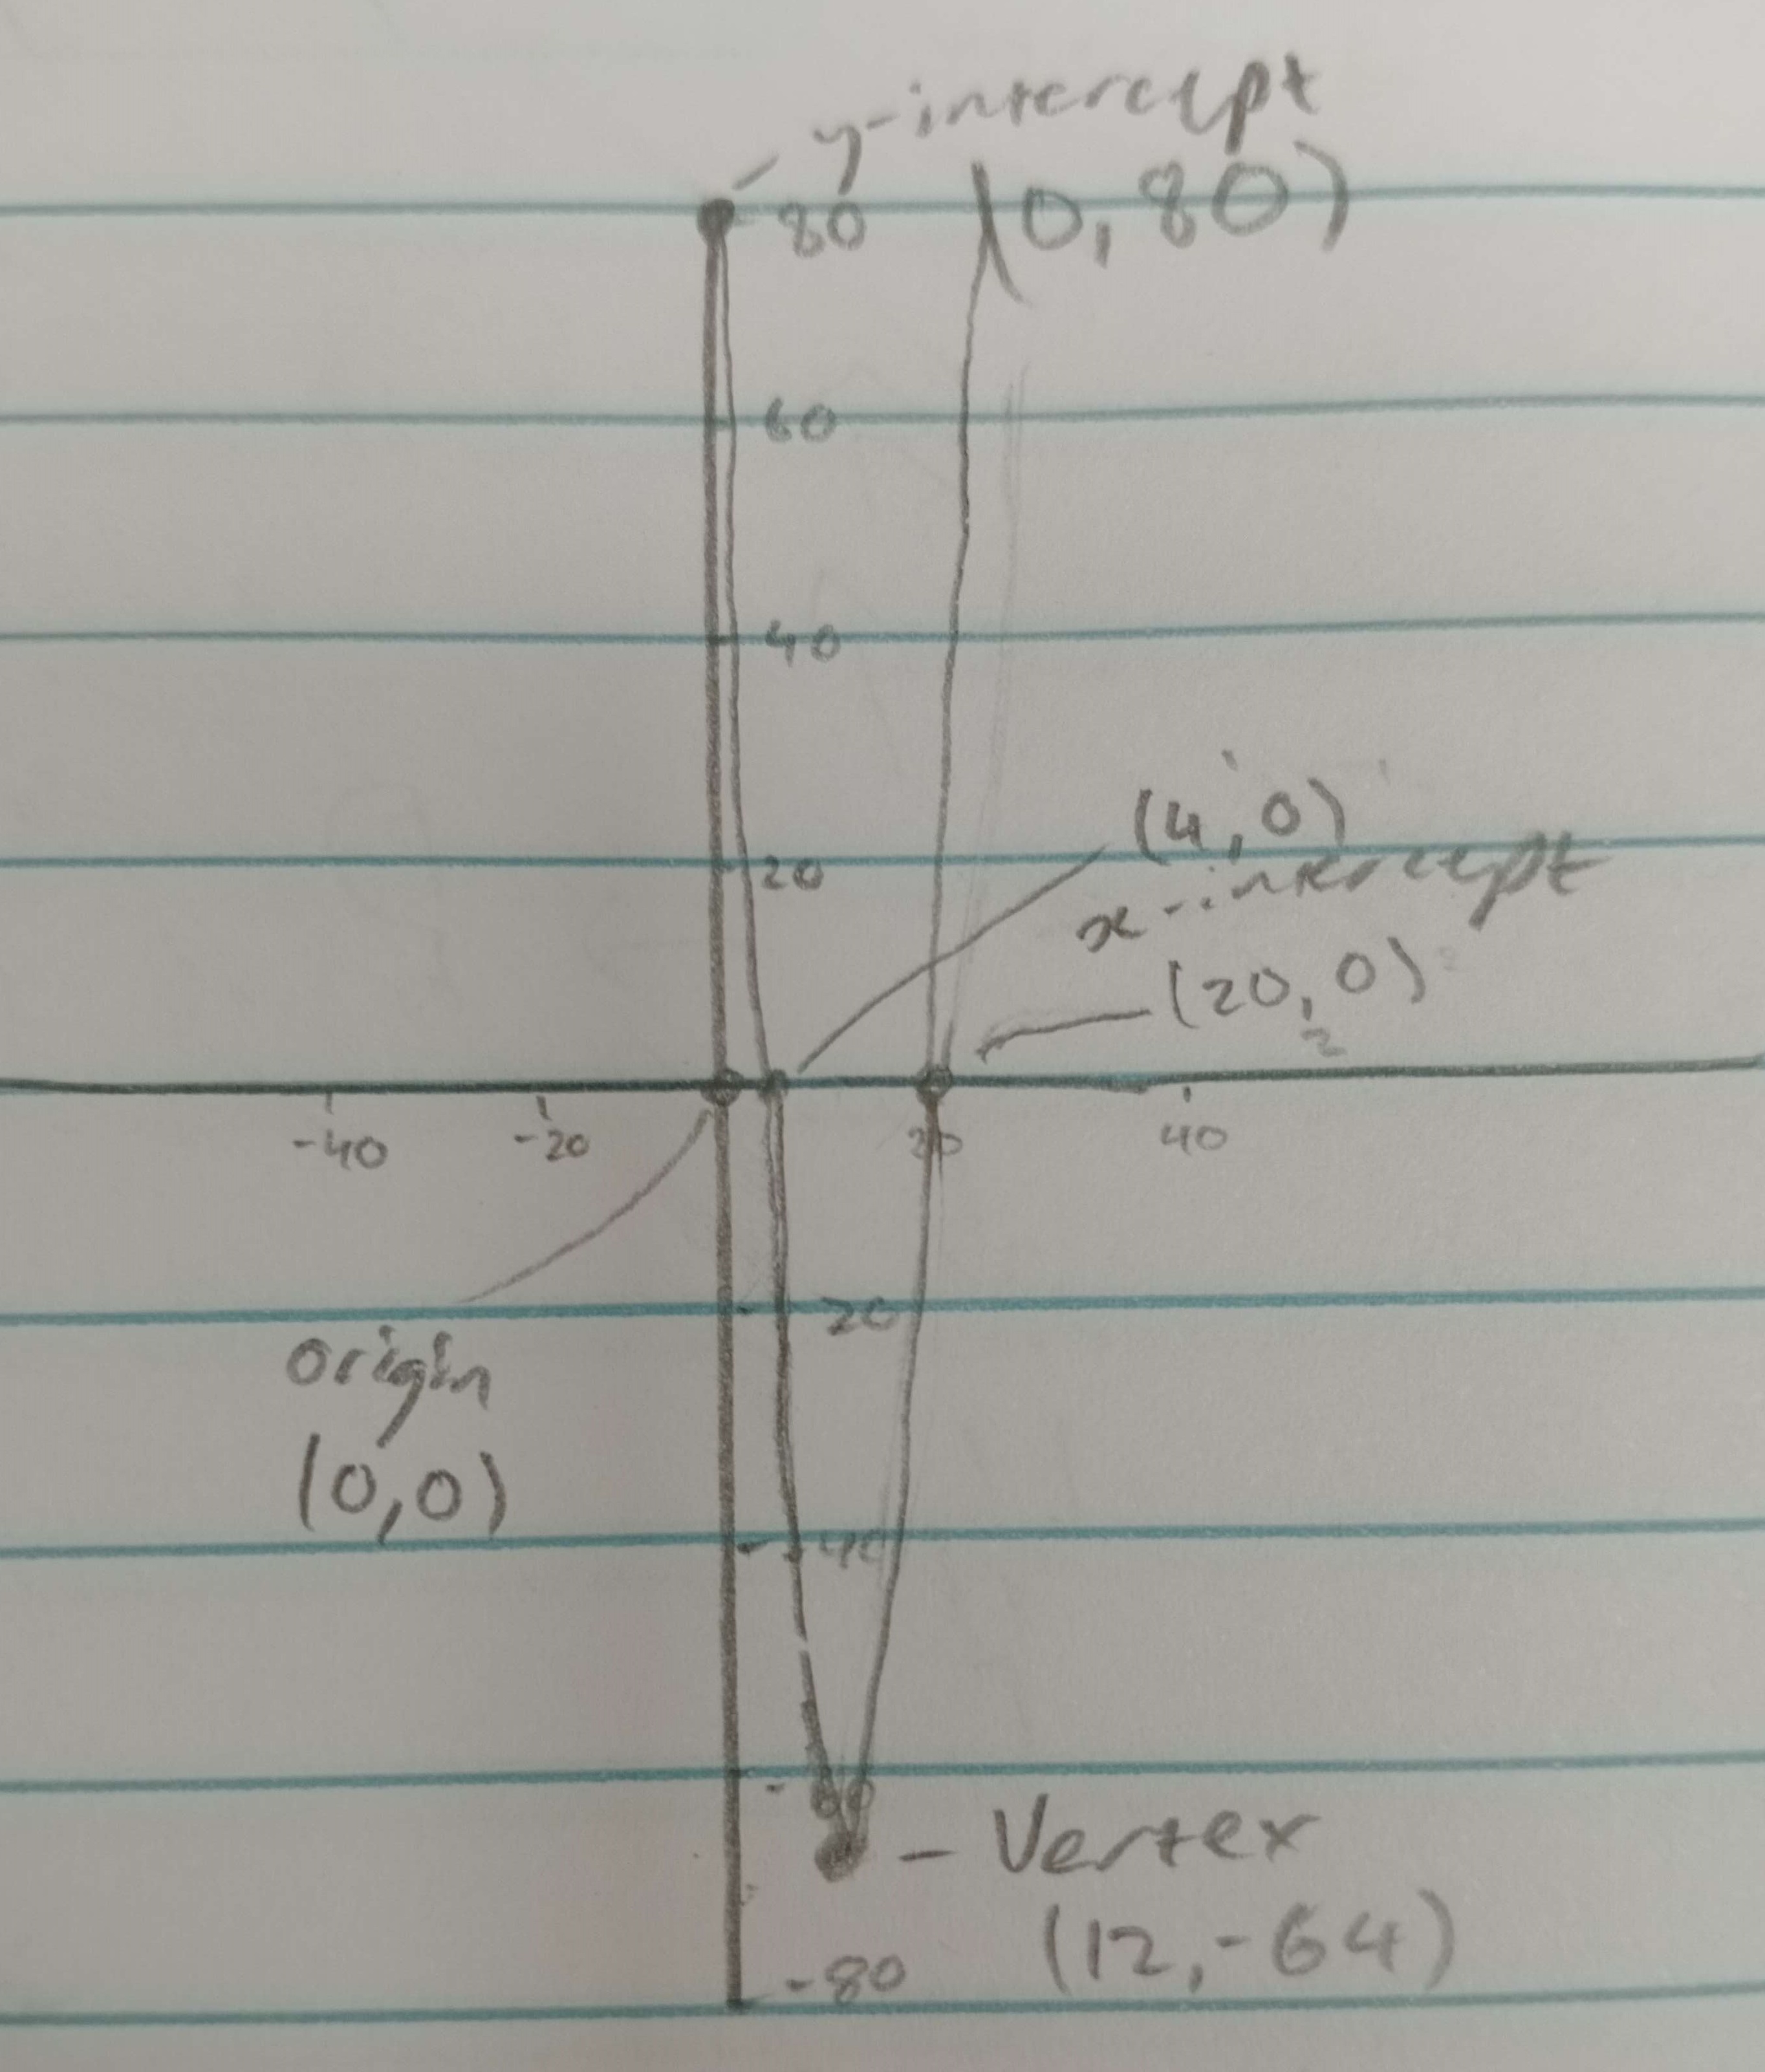 y-intercept
80 (0,80)
60
40
(4,0)
20
x-intercept
(20,0)
-40 -20 20 40
20
origin
(0,0)
-40
-60
- Vertex
(12,-64)
-80